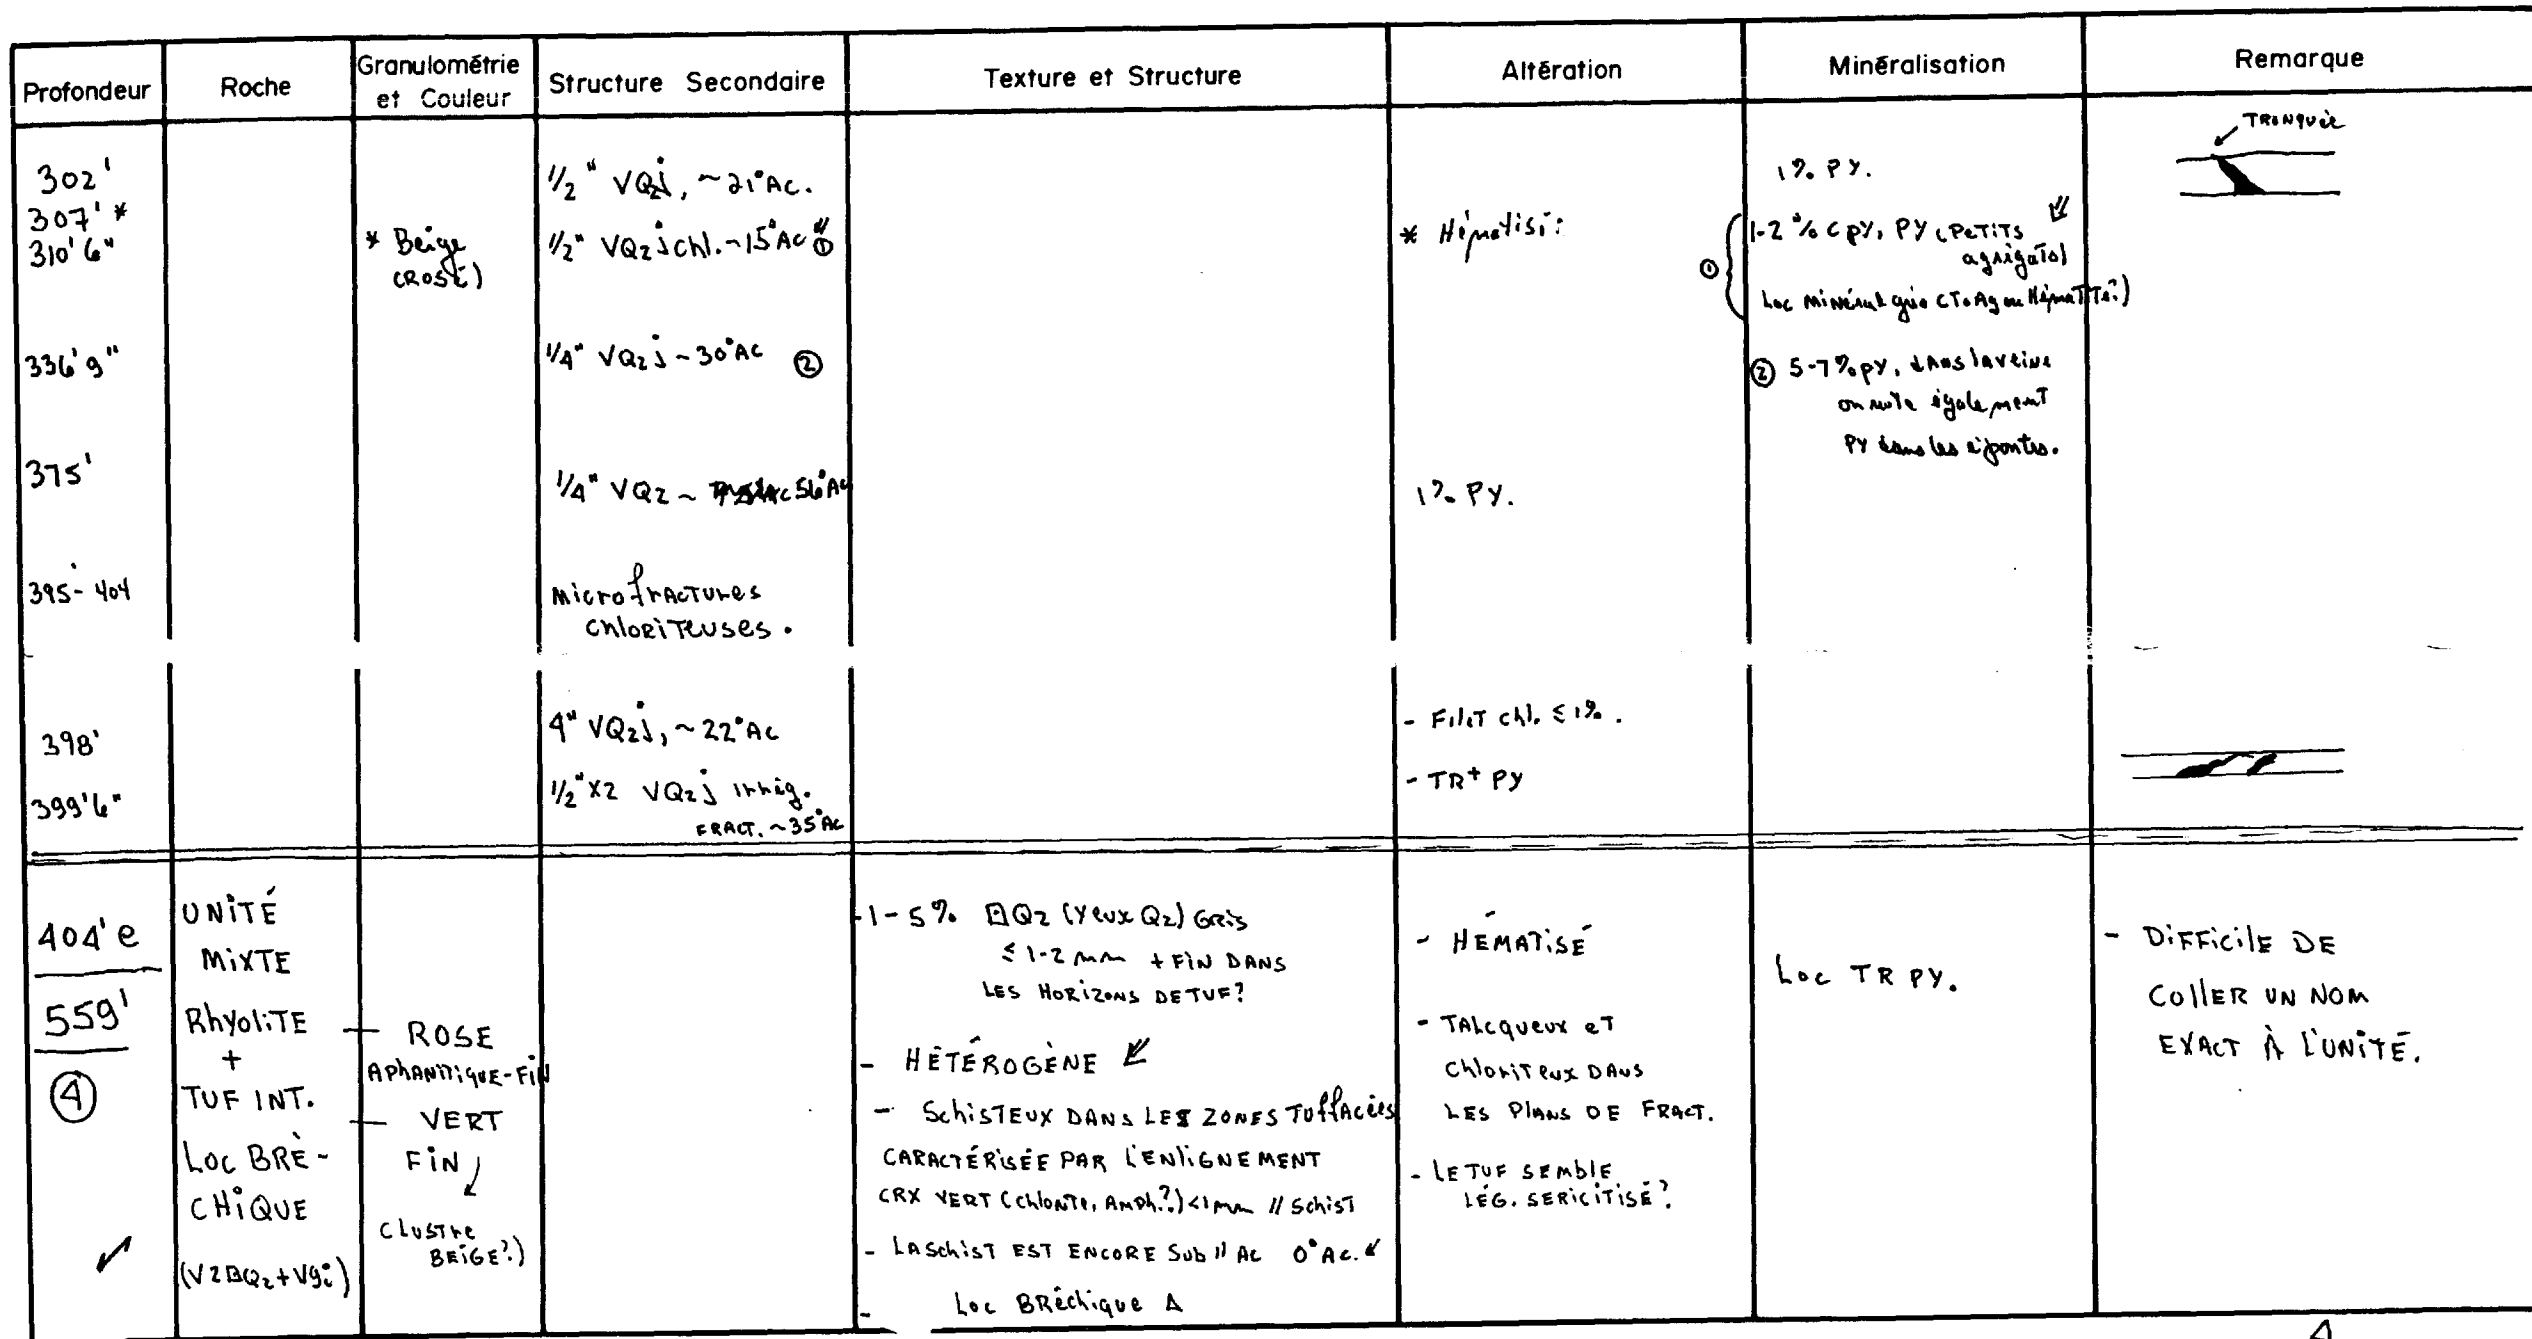 Profondeur Roche Granulométrie et Couleur Structure Secondaire Texture et Structure Altération Minéralisation Remarque
TRONQUÉE
302' 1/2" VQzj, ~21°Ac. 1% PY.
307' * * Beige (ROSÉ) * Hématisé
310'6" 1/2" VQzj chl. ~15°Ac ① ① 1-2% cpy, PY (PETITS
agrégats)
Loc minéral gris (To Ag ou HématiTe?)
336'9" 1/4" VQzj ~30°Ac ② ② 5-7% py, dans la veine
on note également
PY dans les épontes.
375' 1/4" VQz ~ 56°Ac 1% PY.
395-404 microfractures
chloriteuses.
398' 4" VQzj, ~22°Ac - Filet chl. ≤1%.
399'6" 1/2"x2 VQzj irrég. - TR+ PY
FRACT. ~35°Ac
404' e
559'
④
UNITÉ
MIXTE
RhyoliTE
+
TUF INT.
Loc BRÈ-
CHIQUE
(V2⊡Qz+V9i)
— ROSE
APhANiTiQUE-FiN
— VERT
FiN
(LUSTRE
BEiGE?)
-1-5% ⊡Qz (Yeux Qz) GRiS
≤1-2 mm + FiN DANS
LES HORIZONS DE TUF?
- HÉTÉROGÈNE
- SchiSTEUX DANS LES ZONES TUffAcées
CARACTÉRiSÉE PAR L'ENliGNEMENT
CRX VERT (chlorite, Amph.?) <1mm // Schist
- LA Schist EST ENCORE Sub // Ac 0°Ac.
- Loc BRéchique Δ
- HÉMATiSÉ
- TAlcqueux eT
ChloriTeux DAns
LES PlAns DE FRACT.
- LE TUF SEMblE
LÉG. SERiCiTiSÉ?
Loc TR PY.
- DiFFiCilE DE
COllER UN NOM
EXACT À L'UNiTÉ.
4